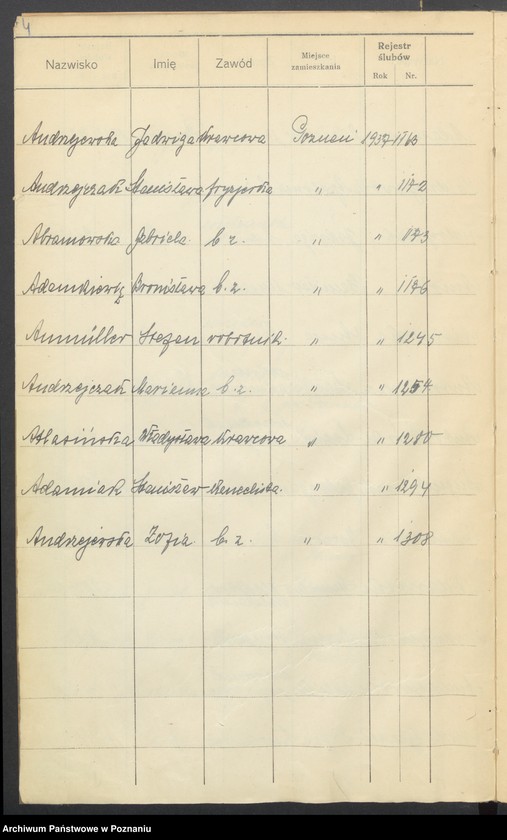 4
Nazwisko Imię Zawód Miejsce zamieszkania Rejestr ślubów Rok Nr.
Andrzejewska Jadwiga krawcowa Poznań 1937 1163
Andrzejczak Stanisława fryzjerka " " 1172
Abramowska Gabriela b. z. " "
Adamkiewicz Bronisława b. z. " " 1176
Aumüller Stefan robotnik. " " 1245
Andrzejczak Marianna b. z. " " 1254
Władysława krawcowa " " 1280
Adamiak Stanisław " " 1294
Andrzejewska Zofia b. z. " " 1308
Archiwum Państwowe w Poznaniu